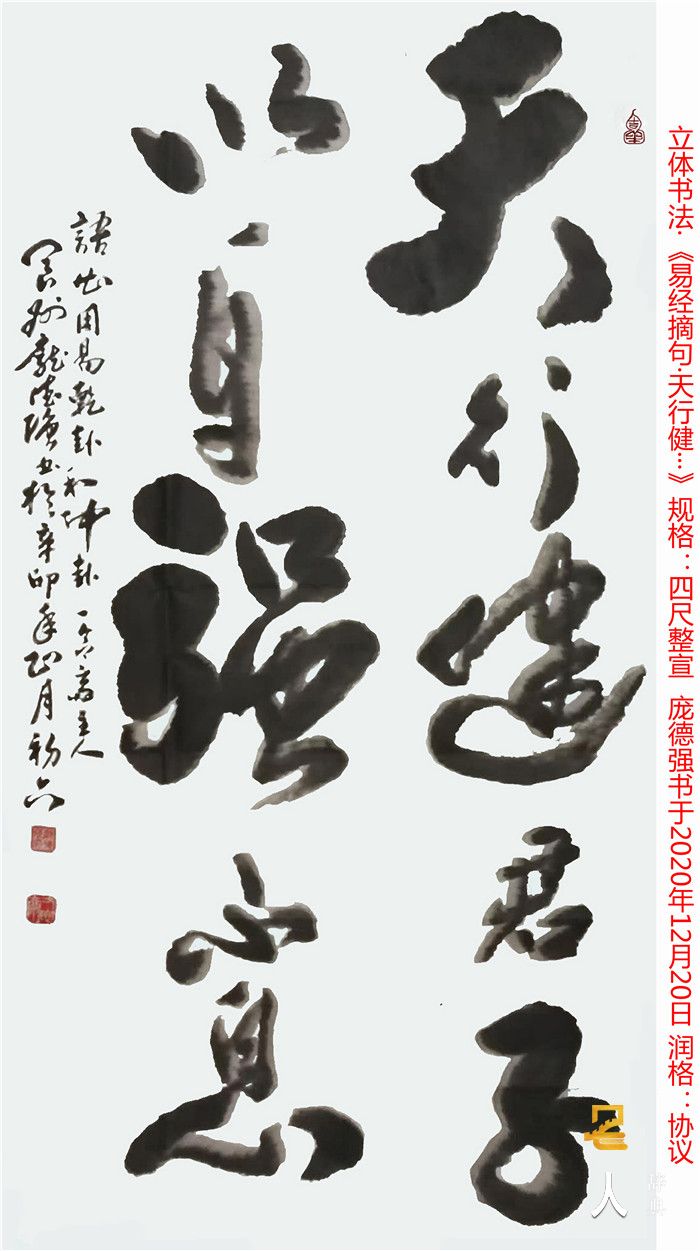 立体书法·《易经摘句·天行健…》 规格：四尺整宣 庞德强书于2020年12月20日 润格：协议
天行健君子
以自强不息
語出周易乾卦和坤卦 一 齋主人
州龐德强书於辛卯年正月初六
人